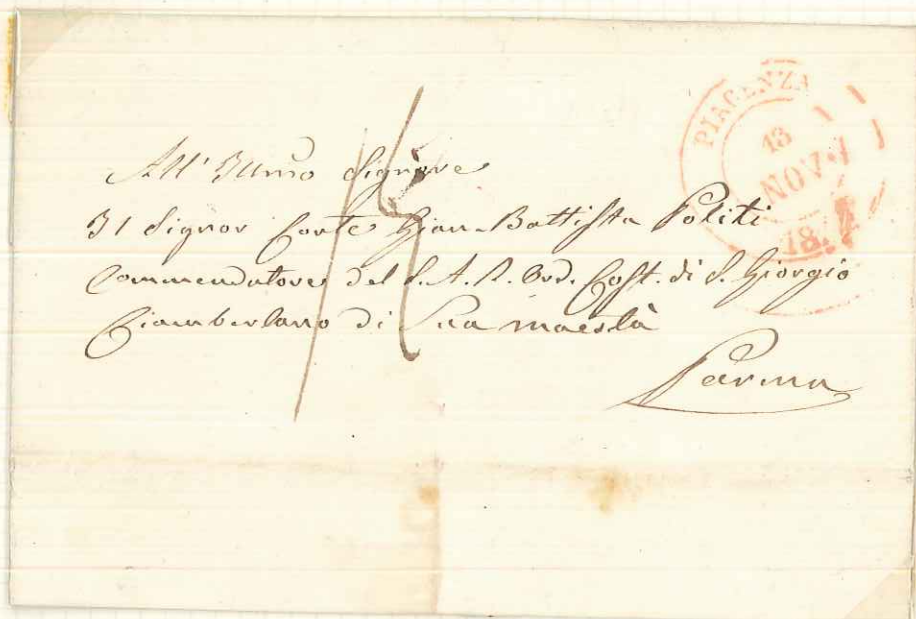 PIACENZA
13
NOV.
18
All' Illmo Signore
Il Signor Conte Gian-Battista Politi
Commendatore del S. A. I. Ord. Cost. di S. Giorgio
Ciamberlano di Sua maestà
Parma